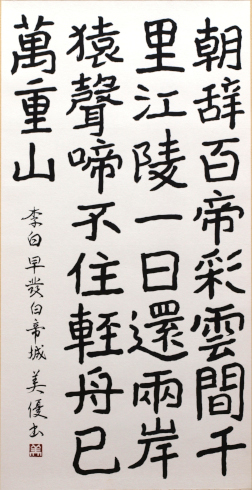 朝辞百帝彩雲間千
里江陵一日還兩岸
猿聲啼不住輊舟已
萬重山
李白早發白帝城 美優书